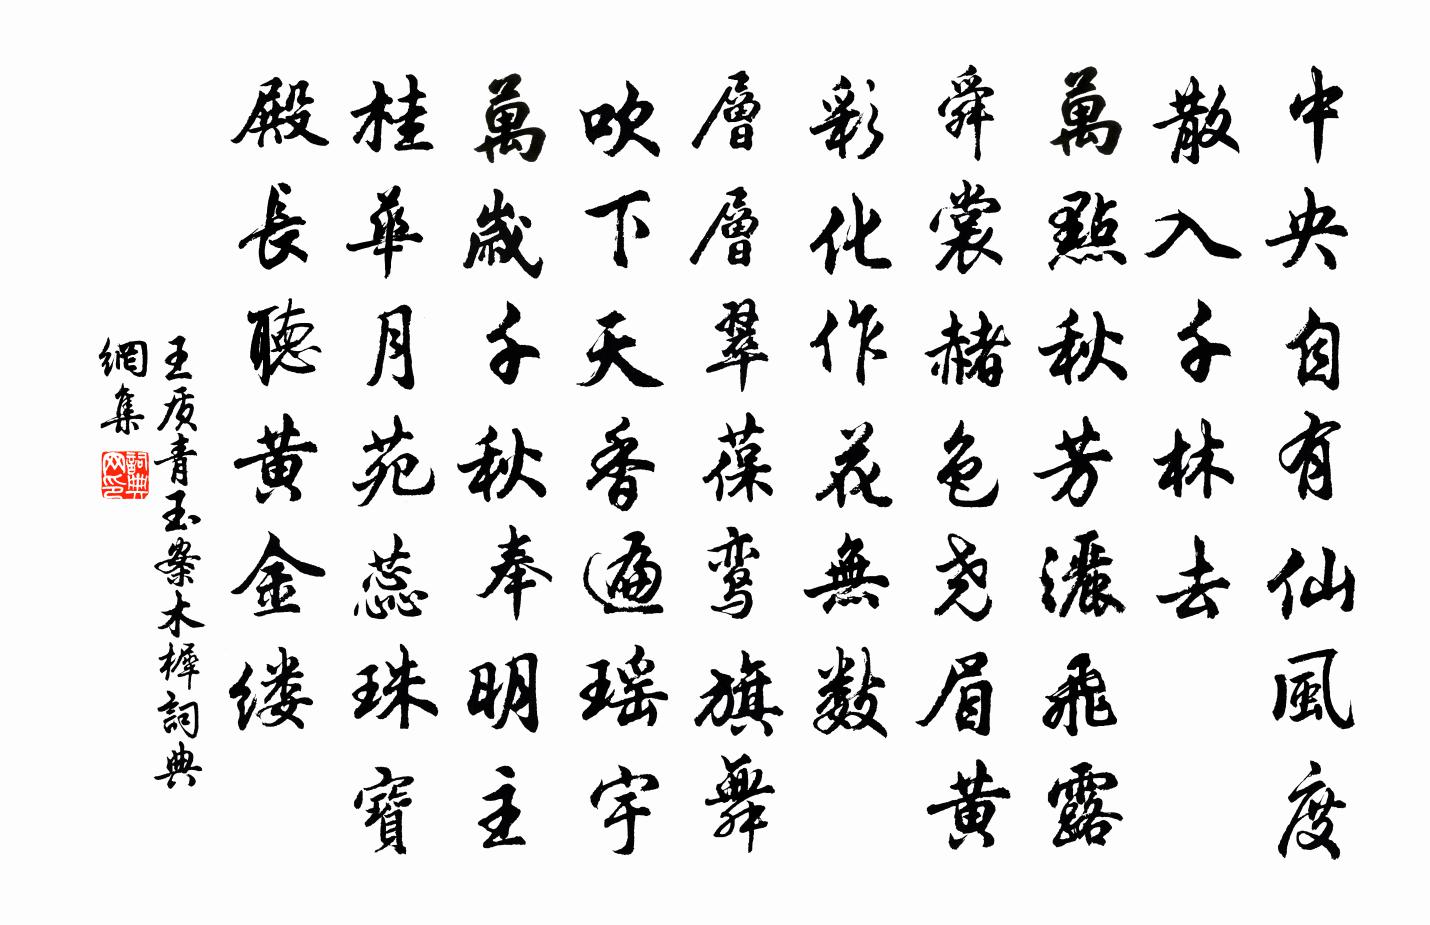 中央自有仙風度
散入千林去
萬點秋芳灑飛露
舜裳赭色尧眉黄
彩化作花無数
層層翠葆鸾旗舞
吹下天香遍瑶宇
萬歲千秋奉明主
桂華月苑蕊珠寶
殿長聽黄金缕
王质青玉案木樨詞典
網集
詞典网印